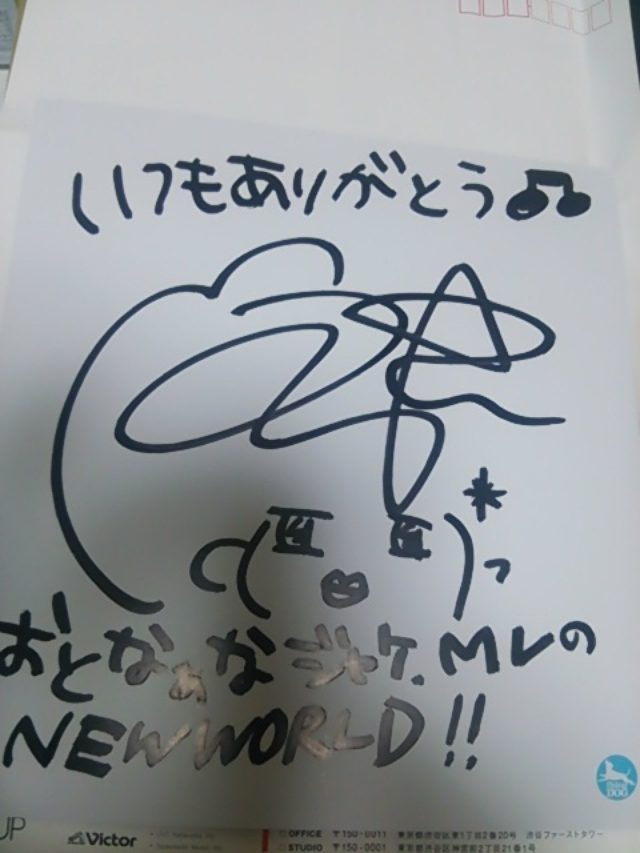 いつもありがとう♫
*
おとなぁなジャケ.MVの
NEW WORLD!!
DOG
UP
Victor
OFFICE 〒150-0011 東京都渋谷区東1丁目2番20号 渋谷ファーストタワー
STUDIO 〒150-0001 東京都渋谷区神宮前2丁目21番1号